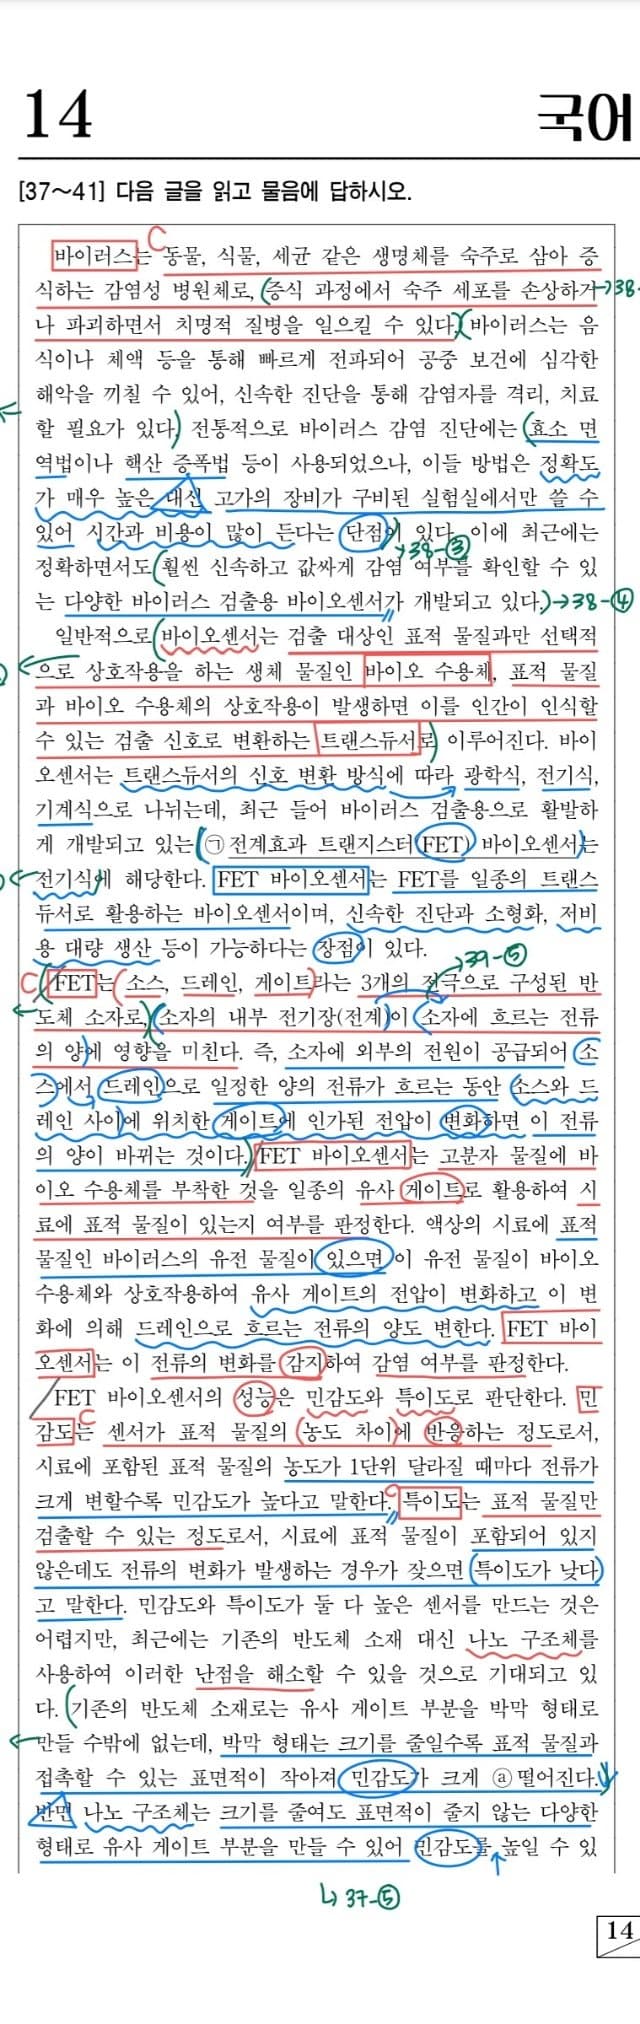 14
국어
[37～41] 다음 글을 읽고 물음에 답하시오.
바이러스는 동물, 식물, 세균 같은 생명체를 숙주로 삼아 증
식하는 감염성 병원체로, (증식 과정에서 숙주 세포를 손상하거 →38-
나 파괴하면서 치명적 질병을 일으킬 수 있다.)(바이러스는 음
식이나 체액 등을 통해 빠르게 전파되어 공중 보건에 심각한
해악을 끼칠 수 있어, 신속한 진단을 통해 감염자를 격리, 치료
할 필요가 있다.) 전통적으로 바이러스 감염 진단에는 (효소 면
역법이나 핵산 증폭법 등이 사용되었으나, 이들 방법은 정확도
가 매우 높은 대신 고가의 장비가 구비된 실험실에서만 쓸 수
있어 시간과 비용이 많이 든다는 단점이 있다. 이에 최근에는
→38-③
정확하면서도 (훨씬 신속하고 값싸게 감염 여부를 확인할 수 있
는 다양한 바이러스 검출용 바이오센서가 개발되고 있다.) →38-④
일반적으로 (바이오센서는 검출 대상인 표적 물질과만 선택적
으로 상호작용을 하는 생체 물질인 바이오 수용체, 표적 물질
과 바이오 수용체의 상호작용이 발생하면 이를 인간이 인식할
수 있는 검출 신호로 변환하는 트랜스듀서로) 이루어진다. 바이
오센서는 트랜스듀서의 신호 변환 방식에 따라 광학식, 전기식,
기계식으로 나뉘는데, 최근 들어 바이러스 검출용으로 활발하
게 개발되고 있는 (㉠전계효과 트랜지스터(FET) 바이오센서는
전기식)에 해당한다. FET 바이오센서는 FET를 일종의 트랜스
듀서로 활용하는 바이오센서이며, 신속한 진단과 소형화, 저비
용 대량 생산 등이 가능하다는 장점이 있다.
→39-⑤
C (FET는 (소스, 드레인, 게이트)라는 3개의 전극으로 구성된 반
도체 소자로,)(소자의 내부 전기장(전계)이 (소자에 흐르는 전류
의 양)에 영향을 미친다. 즉, 소자에 외부의 전원이 공급되어 소
스에서 드레인으로 일정한 양의 전류가 흐르는 동안 소스와 드
레인 사이에 위치한 게이트에 인가된 전압이 변화하면 이 전류
의 양이 바뀌는 것이다.) FET 바이오센서는 고분자 물질에 바
이오 수용체를 부착한 것을 일종의 유사 게이트로 활용하여 시
료에 표적 물질이 있는지 여부를 판정한다. 액상의 시료에 표적
물질인 바이러스의 유전 물질이 있으면 이 유전 물질이 바이오
수용체와 상호작용하여 유사 게이트의 전압이 변화하고 이 변
화에 의해 드레인으로 흐르는 전류의 양도 변한다. FET 바이
오센서는 이 전류의 변화를 감지하여 감염 여부를 판정한다.
FET 바이오센서의 성능은 민감도와 특이도로 판단한다. 민
감도는 센서가 표적 물질의 (농도 차이)에 반응하는 정도로서,
시료에 포함된 표적 물질의 농도가 1단위 달라질 때마다 전류가
크게 변할수록 민감도가 높다고 말한다. 특이도는 표적 물질만
검출할 수 있는 정도로서, 시료에 표적 물질이 포함되어 있지
않은데도 전류의 변화가 발생하는 경우가 잦으면 (특이도가 낮다)
고 말한다. 민감도와 특이도가 둘 다 높은 센서를 만드는 것은
어렵지만, 최근에는 기존의 반도체 소재 대신 나노 구조체를
사용하여 이러한 난점을 해소할 수 있을 것으로 기대되고 있
다. (기존의 반도체 소재로는 유사 게이트 부분을 박막 형태로
만들 수밖에 없는데, 박막 형태는 크기를 줄일수록 표적 물질과
접촉할 수 있는 표면적이 작아져 민감도가 크게 ⓐ떨어진다.
반면 나노 구조체는 크기를 줄여도 표면적이 줄지 않는 다양한
형태로 유사 게이트 부분을 만들 수 있어 민감도를 높일 수 있
↳37-⑤
14